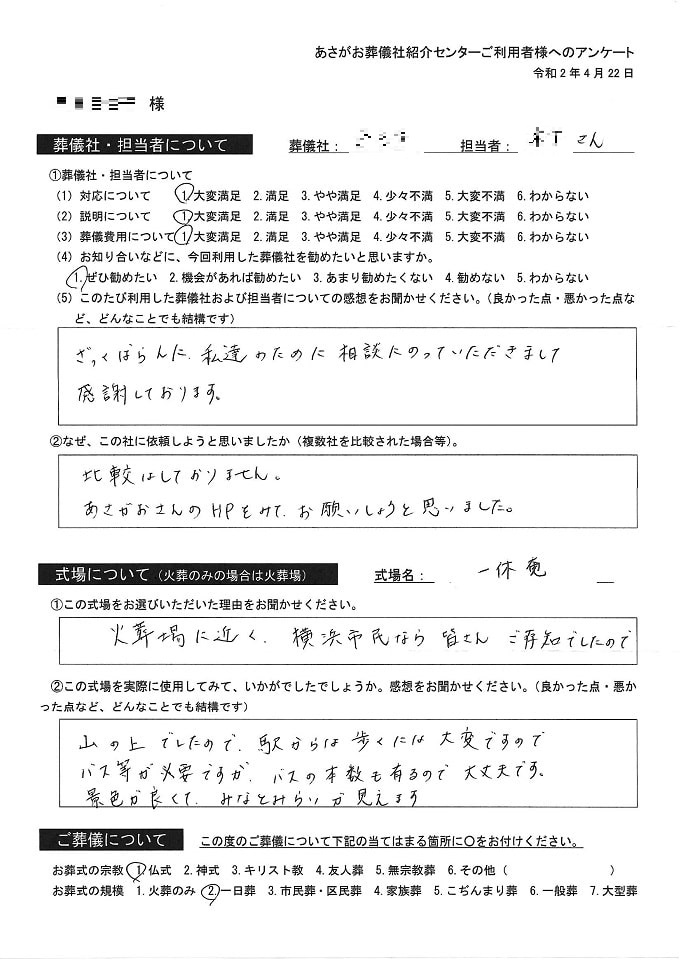 あさがお葬儀社紹介センターご利用者様へのアンケート
令和2年4月22日
様
葬儀社・担当者について 葬儀社： 担当者： さん
①葬儀社・担当者について
(1) 対応について 1.大変満足 2.満足 3.やや満足 4.少々不満 5.大変不満 6.わからない
(2) 説明について 1.大変満足 2.満足 3.やや満足 4.少々不満 5.大変不満 6.わからない
(3) 葬儀費用について 1.大変満足 2.満足 3.やや満足 4.少々不満 5.大変不満 6.わからない
(4) お知り合いなどに、今回利用した葬儀社を勧めたいと思いますか。
1.ぜひ勧めたい 2.機会があれば勧めたい 3.あまり勧めたくない 4.勧めない 5.わからない
(5) このたび利用した葬儀社および担当者についての感想をお聞かせください。（良かった点・悪かった点な
ど、どんなことでも結構です）
ざっくばらんに、私達のために相談にのっていただきまして
感謝しております。
②なぜ、この社に依頼しようと思いましたか（複数社を比較された場合等）。
比較はしておりません。
あさがおさんのHPをみて、お願いしようと思いました。
式場について（火葬のみの場合は火葬場） 式場名： 一休庵
①この式場をお選びいただいた理由をお聞かせください。
火葬場に近く、横浜市民なら皆さんご存知でしたので
②この式場を実際に使用してみて、いかがでしたでしょうか。感想をお聞かせください。（良かった点・悪か
った点など、どんなことでも結構です）
山の上でしたので、駅からは歩くには大変ですので
バス等が必要ですが、バスの本数も有るので大丈夫です。
景色が良くて、みなとみらいが見えます
ご葬儀について この度のご葬儀について下記の当てはまる箇所に〇をお付けください。
お葬式の宗教 1.仏式 2.神式 3.キリスト教 4.友人葬 5.無宗教葬 6.その他（ ）
お葬式の規模 1.火葬のみ 2.一日葬 3.市民葬・区民葬 4.家族葬 5.こぢんまり葬 6.一般葬 7.大型葬